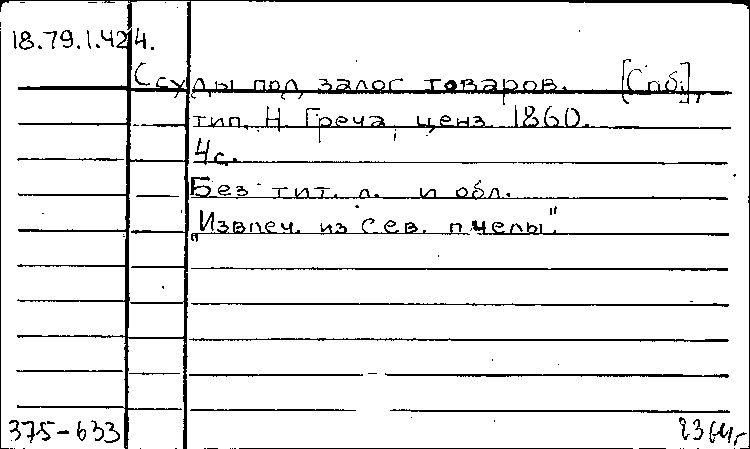 18.79.1.424.
Ссуды под залог товаров. [Спб],
тип. Н. Греча, ценз. 1860.
4с.
Без тит. л. и обл.
„Извлеч. из Сев. пчелы".
375-633